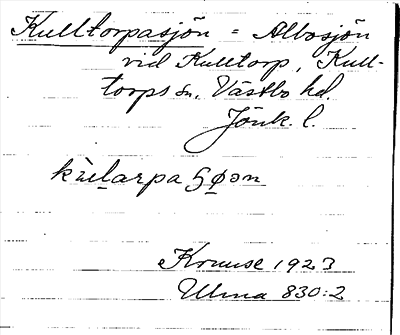 Kulltorpasjön = Albosjön
vid Kulltorp, Kull-
torps sn. Västbo hd.
Jönk. l.
Krause 1923
Ulma 830:2